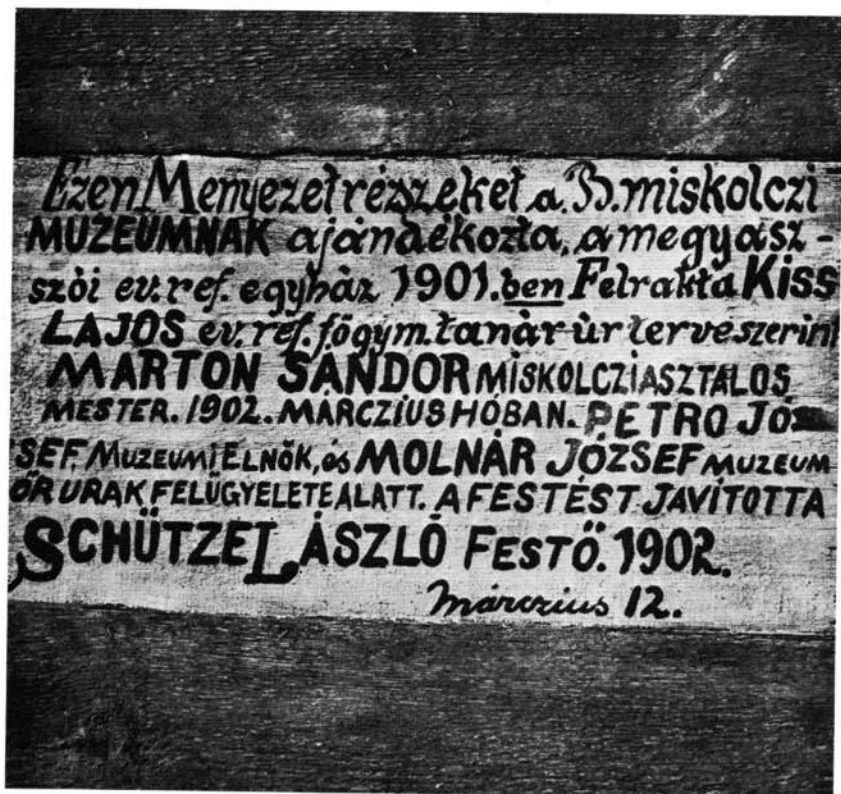 Ezen Menyezetrészeket a B. miskolczi
MUZEUMNAK ajándékozta, a megyasz-
szói ev. ref. egyház 1901. ben Felrakta KISS
LAJOS ev. ref. főgym. tanár úr terve szerint
MARTON SÁNDOR MISKOLCZI ASZTALOS
MESTER. 1902. MÁRCZIUS HÓBAN. PETRO JÓ
SEF. MUZEUMI ELNÖK, és MOLNÁR JÓZSEF MUZEUM
ŐR URAK FELÜGYELETE ALATT. A FESTÉST JAVÍTOTTA
SCHÜTZE LÁSZLÓ FESTŐ. 1902.
márczius 12.